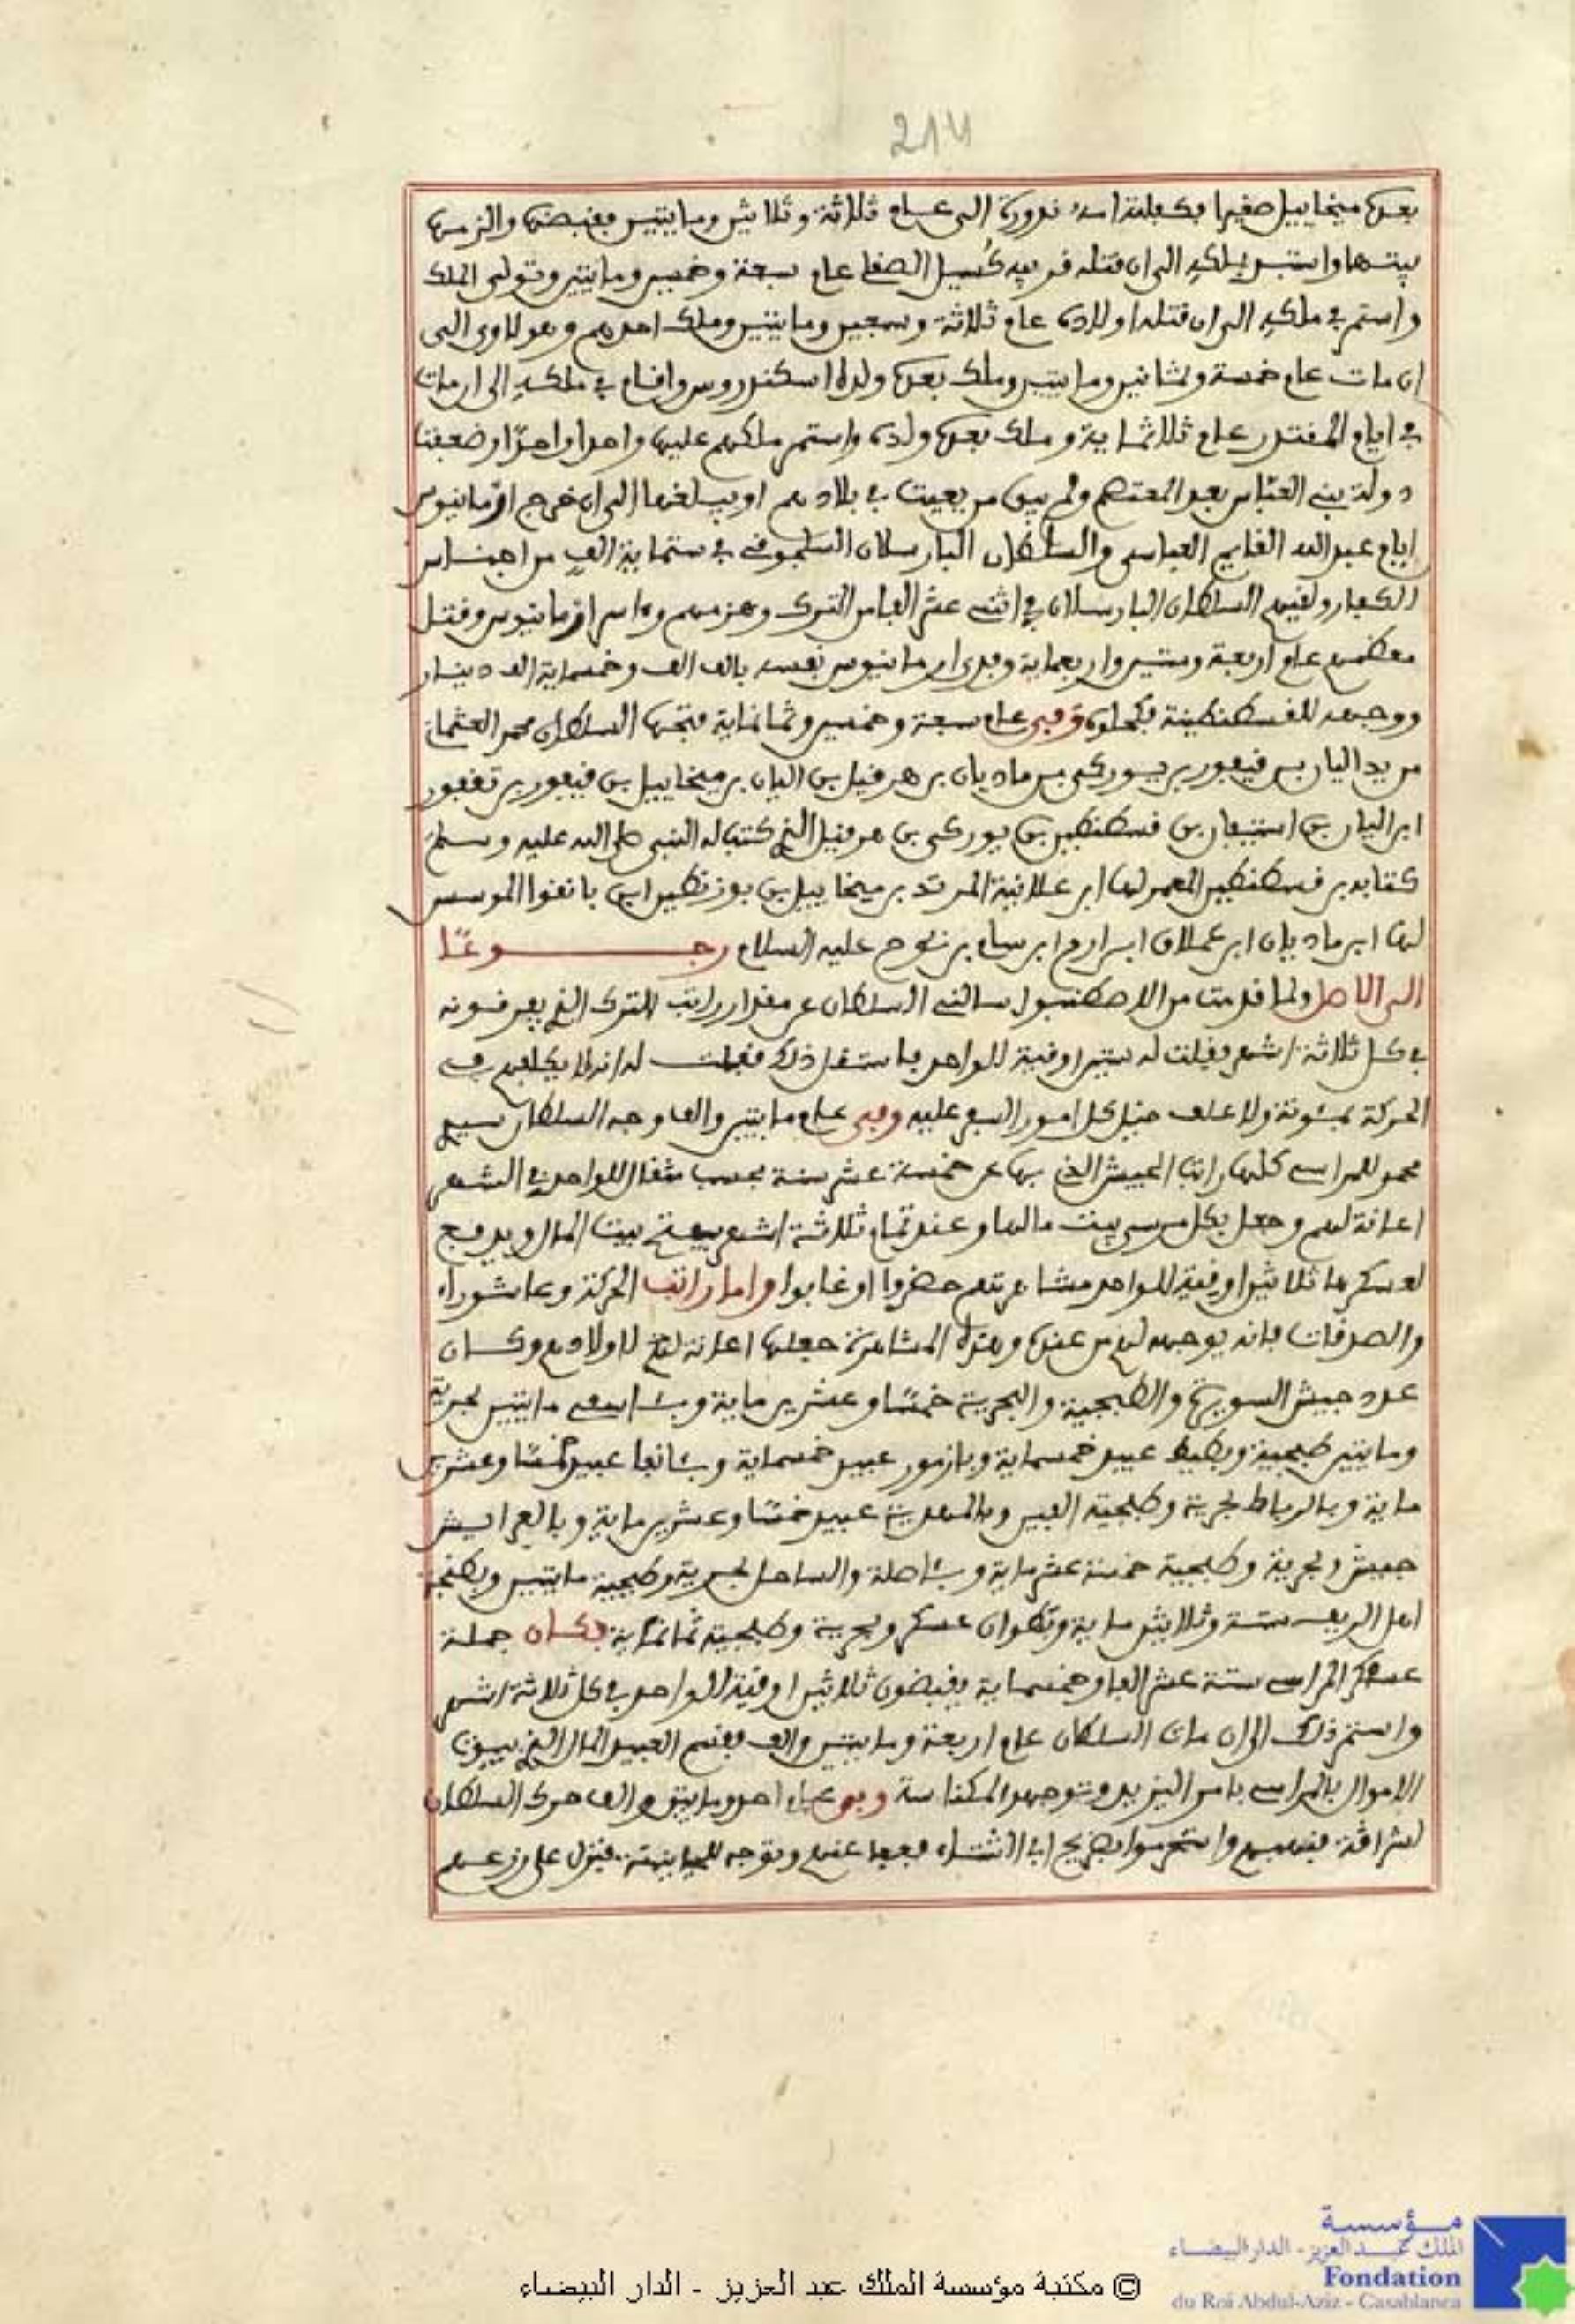 214
بعده ميخاييل صغيرا بكفلته امه ندورة الى عام ثلاثة وثلاثين ومايتين فقبضها والزمها
بيتها واستبد بملكه الى ان قتله قريبه بسيل الصقلي عام سبعة وخمسين ومايتين وتولى الملك
واستمر في ملكه الى ان قتله اولاده عام ثلاثة وسبعين ومايتين وملك احدهم وهو لاوي الى
ان مات عام خمسة وثمانين ومايتين وملك بعده ولده اسكندروس واقام في ملكه الى ان مات
في ايام المقتدر عام ثلاثماية وملك بعده ولده واستمر ملكهم عليها واحدا واحدا وضعفت
دولة بني العباس بعد المعتصم ولم يبق من يغيث في بلادهم او يبلغها الى ان خرج ارمانيوس
ايام عبد الله القايم العباسي والسلطان البارسلان السلجوقي في ستماية الف من اجناس
الكفار ولقيهم السلطان البارسلان في اثنى عشر الفا من الترك وهزمهم واسر ارمانيوس وقتل
معظمهم عام اربعة وستين واربعماية وفدى ارمانيوس نفسه بالف الف وخمسماية الف دينار
ووجهه للقسطنطينة وفي عام سبعة وخمسين وثمانماية فتحها السلطان محمد العثماني
من يد اليان بن قيعور بن يوركي بن ماديان بن هرقيل بن اليان بن ميخاييل بن قيعور بن تغفور
ابن اليان بن استيفان بن قسطنطين بن يوركي بن هرقيل الذي كتب له النبي صلى الله عليه وسلم
كتابه بن قسطنطين المعمر لها ابن علانية المرتد بن ميخاييل بن بوزنطين ابن يانغوا الموسس
لها ابن ماديان ابن عملاق ابن ارم ابن سام بن نوح عليه السلام رجوعا
الى الاصل ولما قدمت من الاصطنبول سالني السلطان عن مقدار راتب الترك الذي يعرفونه
في كل ثلاثة اشهر فقلت له ستين اوقية للواحد فاستقل ذلك فقلت له انه لا يكلفهم في
الحركة بمئونة ولا علف خيل كل امور السفر عليه وفي عام مايتين والف وجه السلطان سيدي
محمد للمراسي كلها راتب الجيش الذي بها عن خمسة عشر سنة بحسب مثقال للواحد في الشهر
اعانة لهم وجعل بكل مرسى بيت مالها وعند تمام ثلاثة اشهر يفتح بيت المال ويدفع
لعسكرها ثلاثين اوقية للواحد مشاهرتهم حضروا او غابوا واما راتب الحركة وعاشوراء
والصدقات فانه يوجهه لهم من عنده وهذه المشاهرة جعلها اعانة لهم لاولادهم وكان
عدد جيش السويرة والطبجية والبحرية خمسا وعشرين ماية وباسفي مايتين بحرية
ومايتين طبجية وبطيط عبيد خمسماية وبازمور عبيد خمسماية وبانفا عبيد خمسا وعشرين
ماية وبالرباط بحرية وطبجية الفين وبالمهدية عبيد خمسا وعشرين ماية وبالعرايش
جيش وبحرية وطبجية خمسة عشر ماية وباصلة والساحل بحرية وطبجية مايتين وبطنجة
اهل الريف ستة وثلاثين ماية وبتطوان عسكر وبحرية وطبجية ثمانماية فكان جملة
عسكر المراسي ستة عشر الفا وخمسماية يقبضون ثلاثين اوقية للواحد في كل ثلاثة اشهر
واستمر ذلك الى ان مات السلطان عام اربعة ومايتين والف فقسم العبيد المال الذي ببيوت
الاموال بالمراسي بامر اليزيد وتوجهوا لمكناسة وفي عام احد ومايتين والف حرك السلطان
لشراقة فنهبهم واستحرموا بضريح ابي الشتاء فعفا عنهم وتوجه للحياينة فنزل على زرعهم
مؤسسة
الملك عبد العزيز - الدار البيضاء
Fondation
du Roi Abdul-Aziz - Casablanca
© مكتبة مؤسسة الملك عبد العزيز - الدار البيضاء